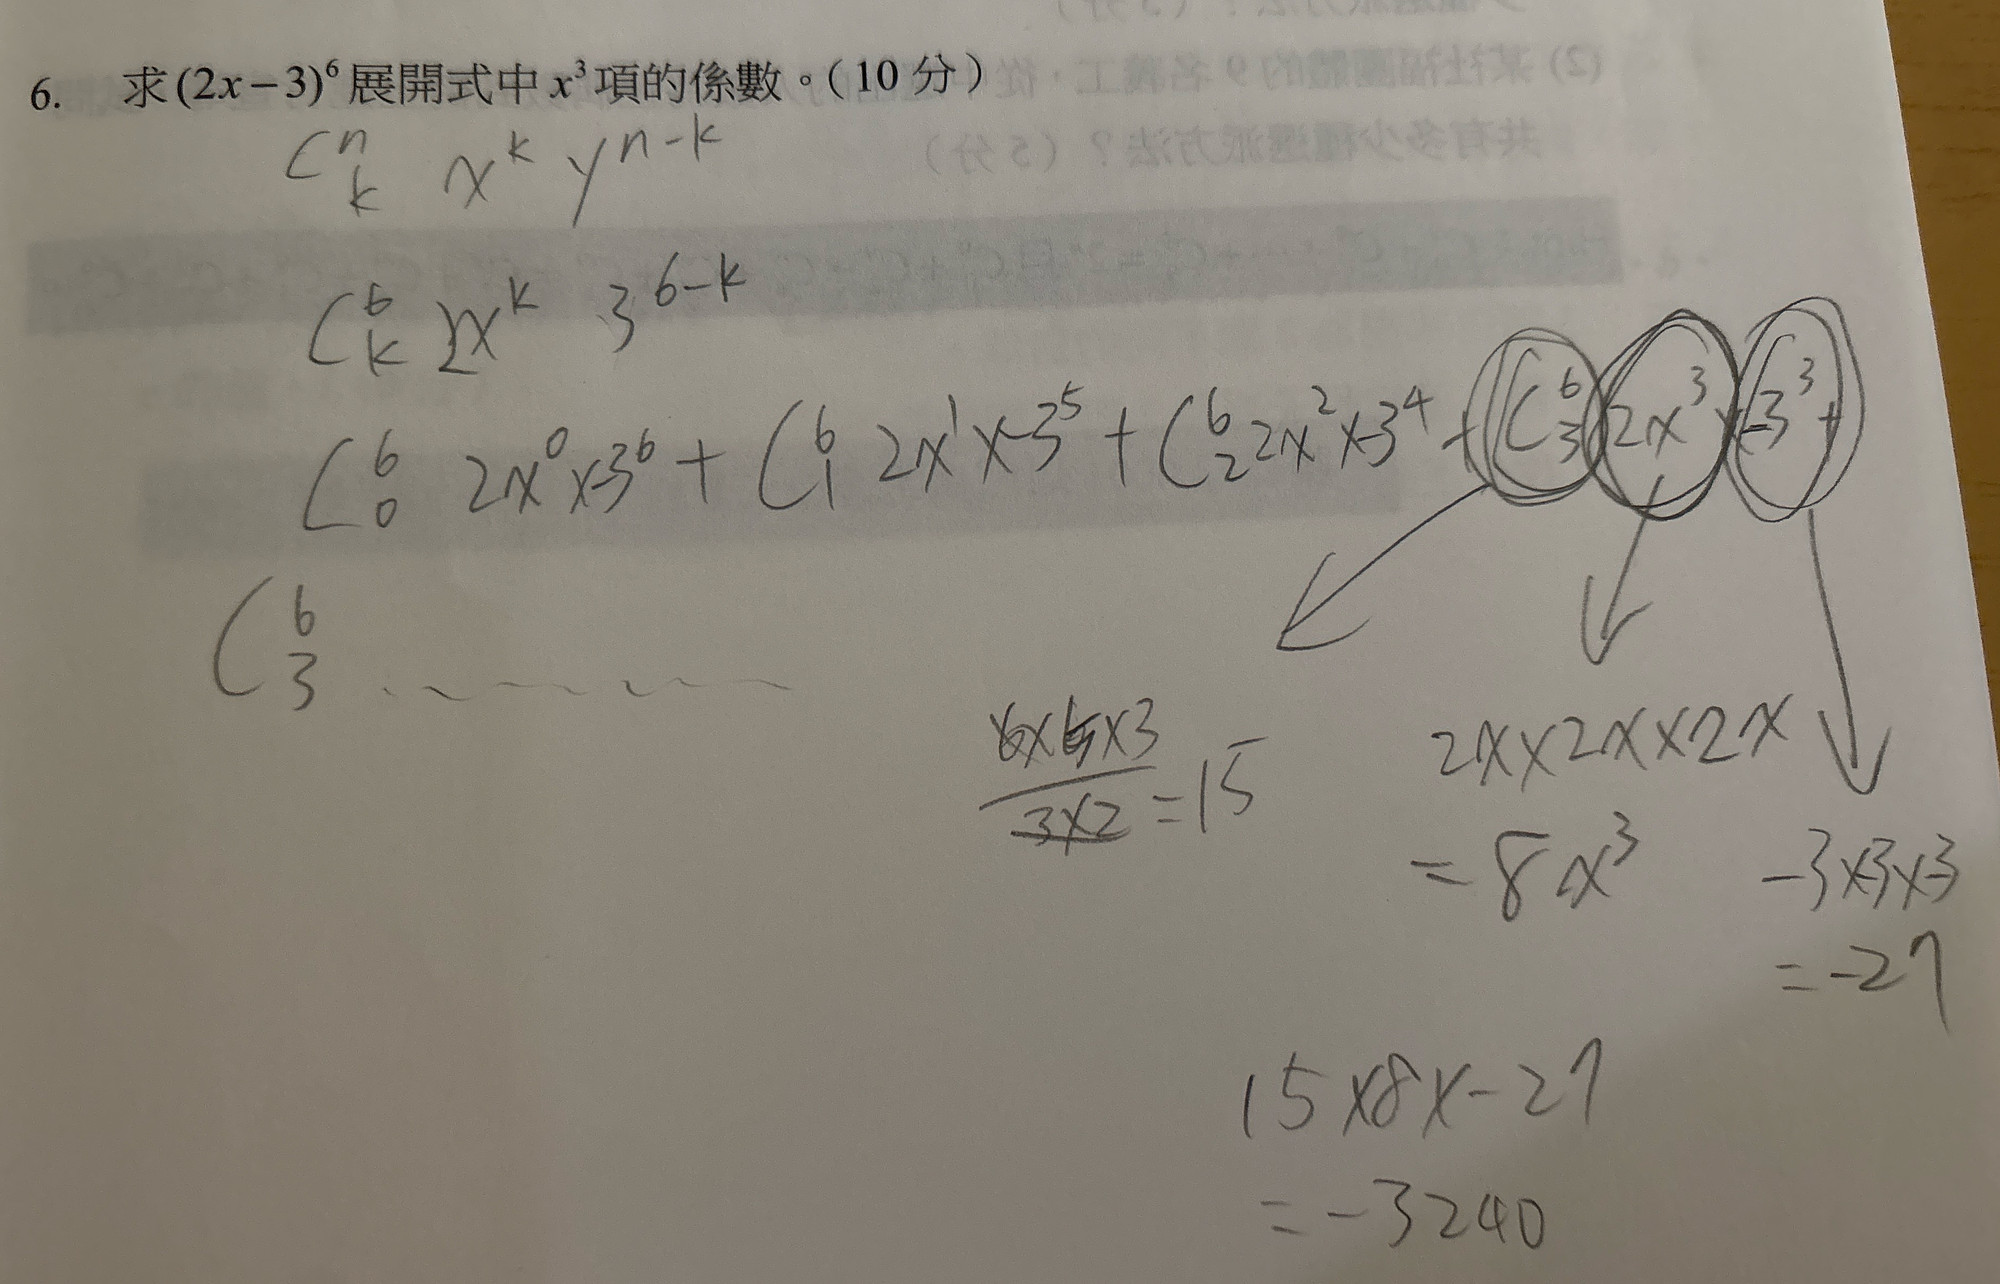 6. 求(2x-3)⁶展開式中x³項的係數。(10分)
Cⁿₖ xᵏ yⁿ⁻ᵏ
C⁶ₖ 2xᵏ 3⁶⁻ᵏ
C⁶₀ 2x⁰×-3⁶ + C⁶₁ 2x¹×-3⁵ + C⁶₂ 2x²×-3⁴ + C⁶₃ 2x³ × -3³ +
C⁶₃
6×5×3
3×2 = 15
2x×2x×2x
= 8x³
-3×-3×-3
= -27
15×8×-27
= -3240